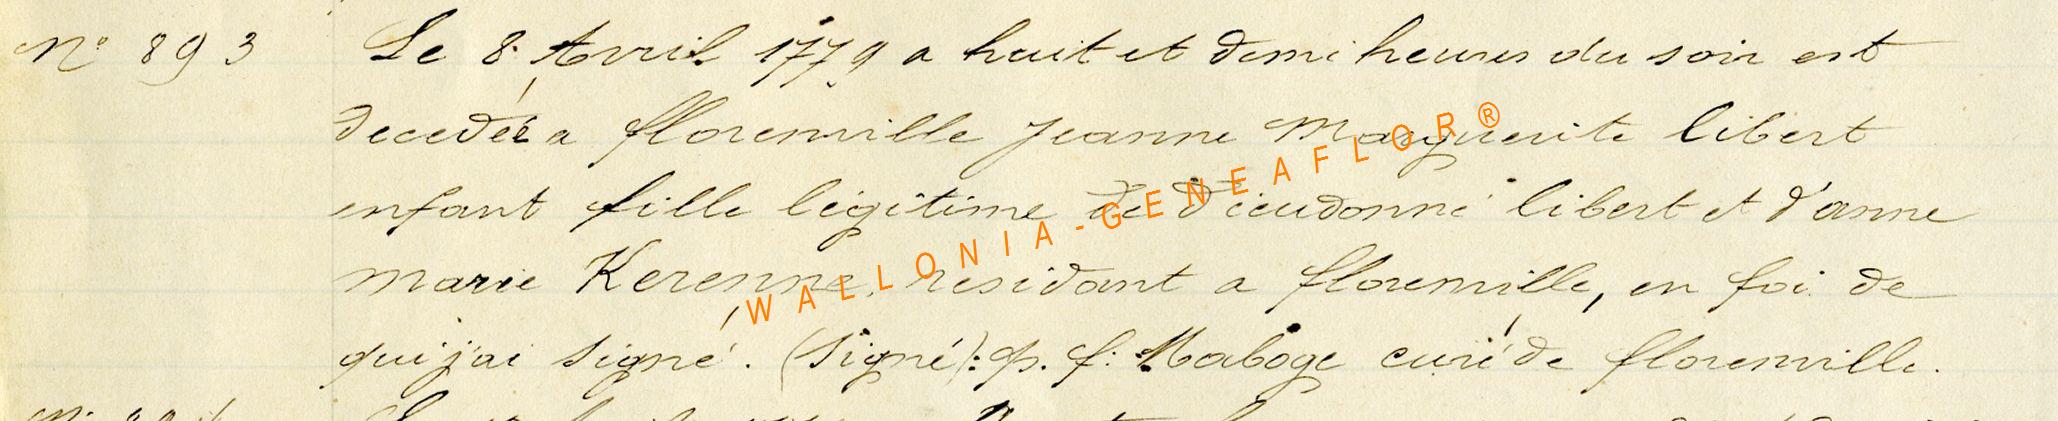 N° 893 Le 8 Avril 1779 a huit et demi heures du soir est
decedée a florenville Jeanne Marguerite libert
enfant fille légitime de Dieudonné libert et d'anne
marie Kerenne. residant a florenville, en foi de
qui j'ai signé. (Signé): p. f. Maboge curé de florenville.
WALLONIA-GENEAFLOR®